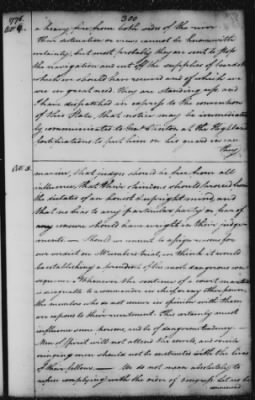 300
1776.
Oct. 9.
a heavy fire from both sides of the river
their intention or view cannot be known with
certainty, but most probably they are sent to stop
the navigation and cut off the supplies of
which we should have received and of which we
are in great need. they are standing up, and
I have dispatched an express to the convention
of this State, that notice may be immediately
communicated to Gen. Clinton at the Highland
fortifications to put him on his guard in case
they
martin, that judges should be free from all
influence, that their opinions should proceed from
the dictates of an honest & upright mind, and
that no bias to any particular party or fear of
any censure should have weight in their judg-
ments. — Should we consent to assign reasons for
our verdict on trial, we think it would
be establishing a precedent of the most dangerous con-
. Whenever the sentence of a court martial
is disagreeable to a commander in chief or any other person,
the members who do not concur in opinion with them
are exposed to their resentment. This certainly must
influence some persons, and be of dangerous tendency —
Men of spirit will not attend the courts, and
men should not be entrusted with the lives
of their fellows. — We do not mean absolutely to
refuse complying with the order of congress. Let us be